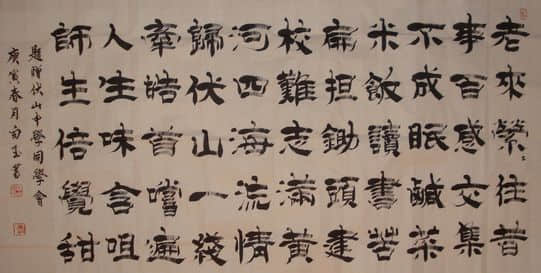 老來縈〻往昔
事百感交集
不成眠鹹菜
米飯讀書苦
扁担鋤頭建
校難志滿黃
河四海流情
歸伏山一綫
牽皓首嚐遍
人生味含咀
師生倍覺甜
題贈伏山中學同學會
庚寅春月玉書